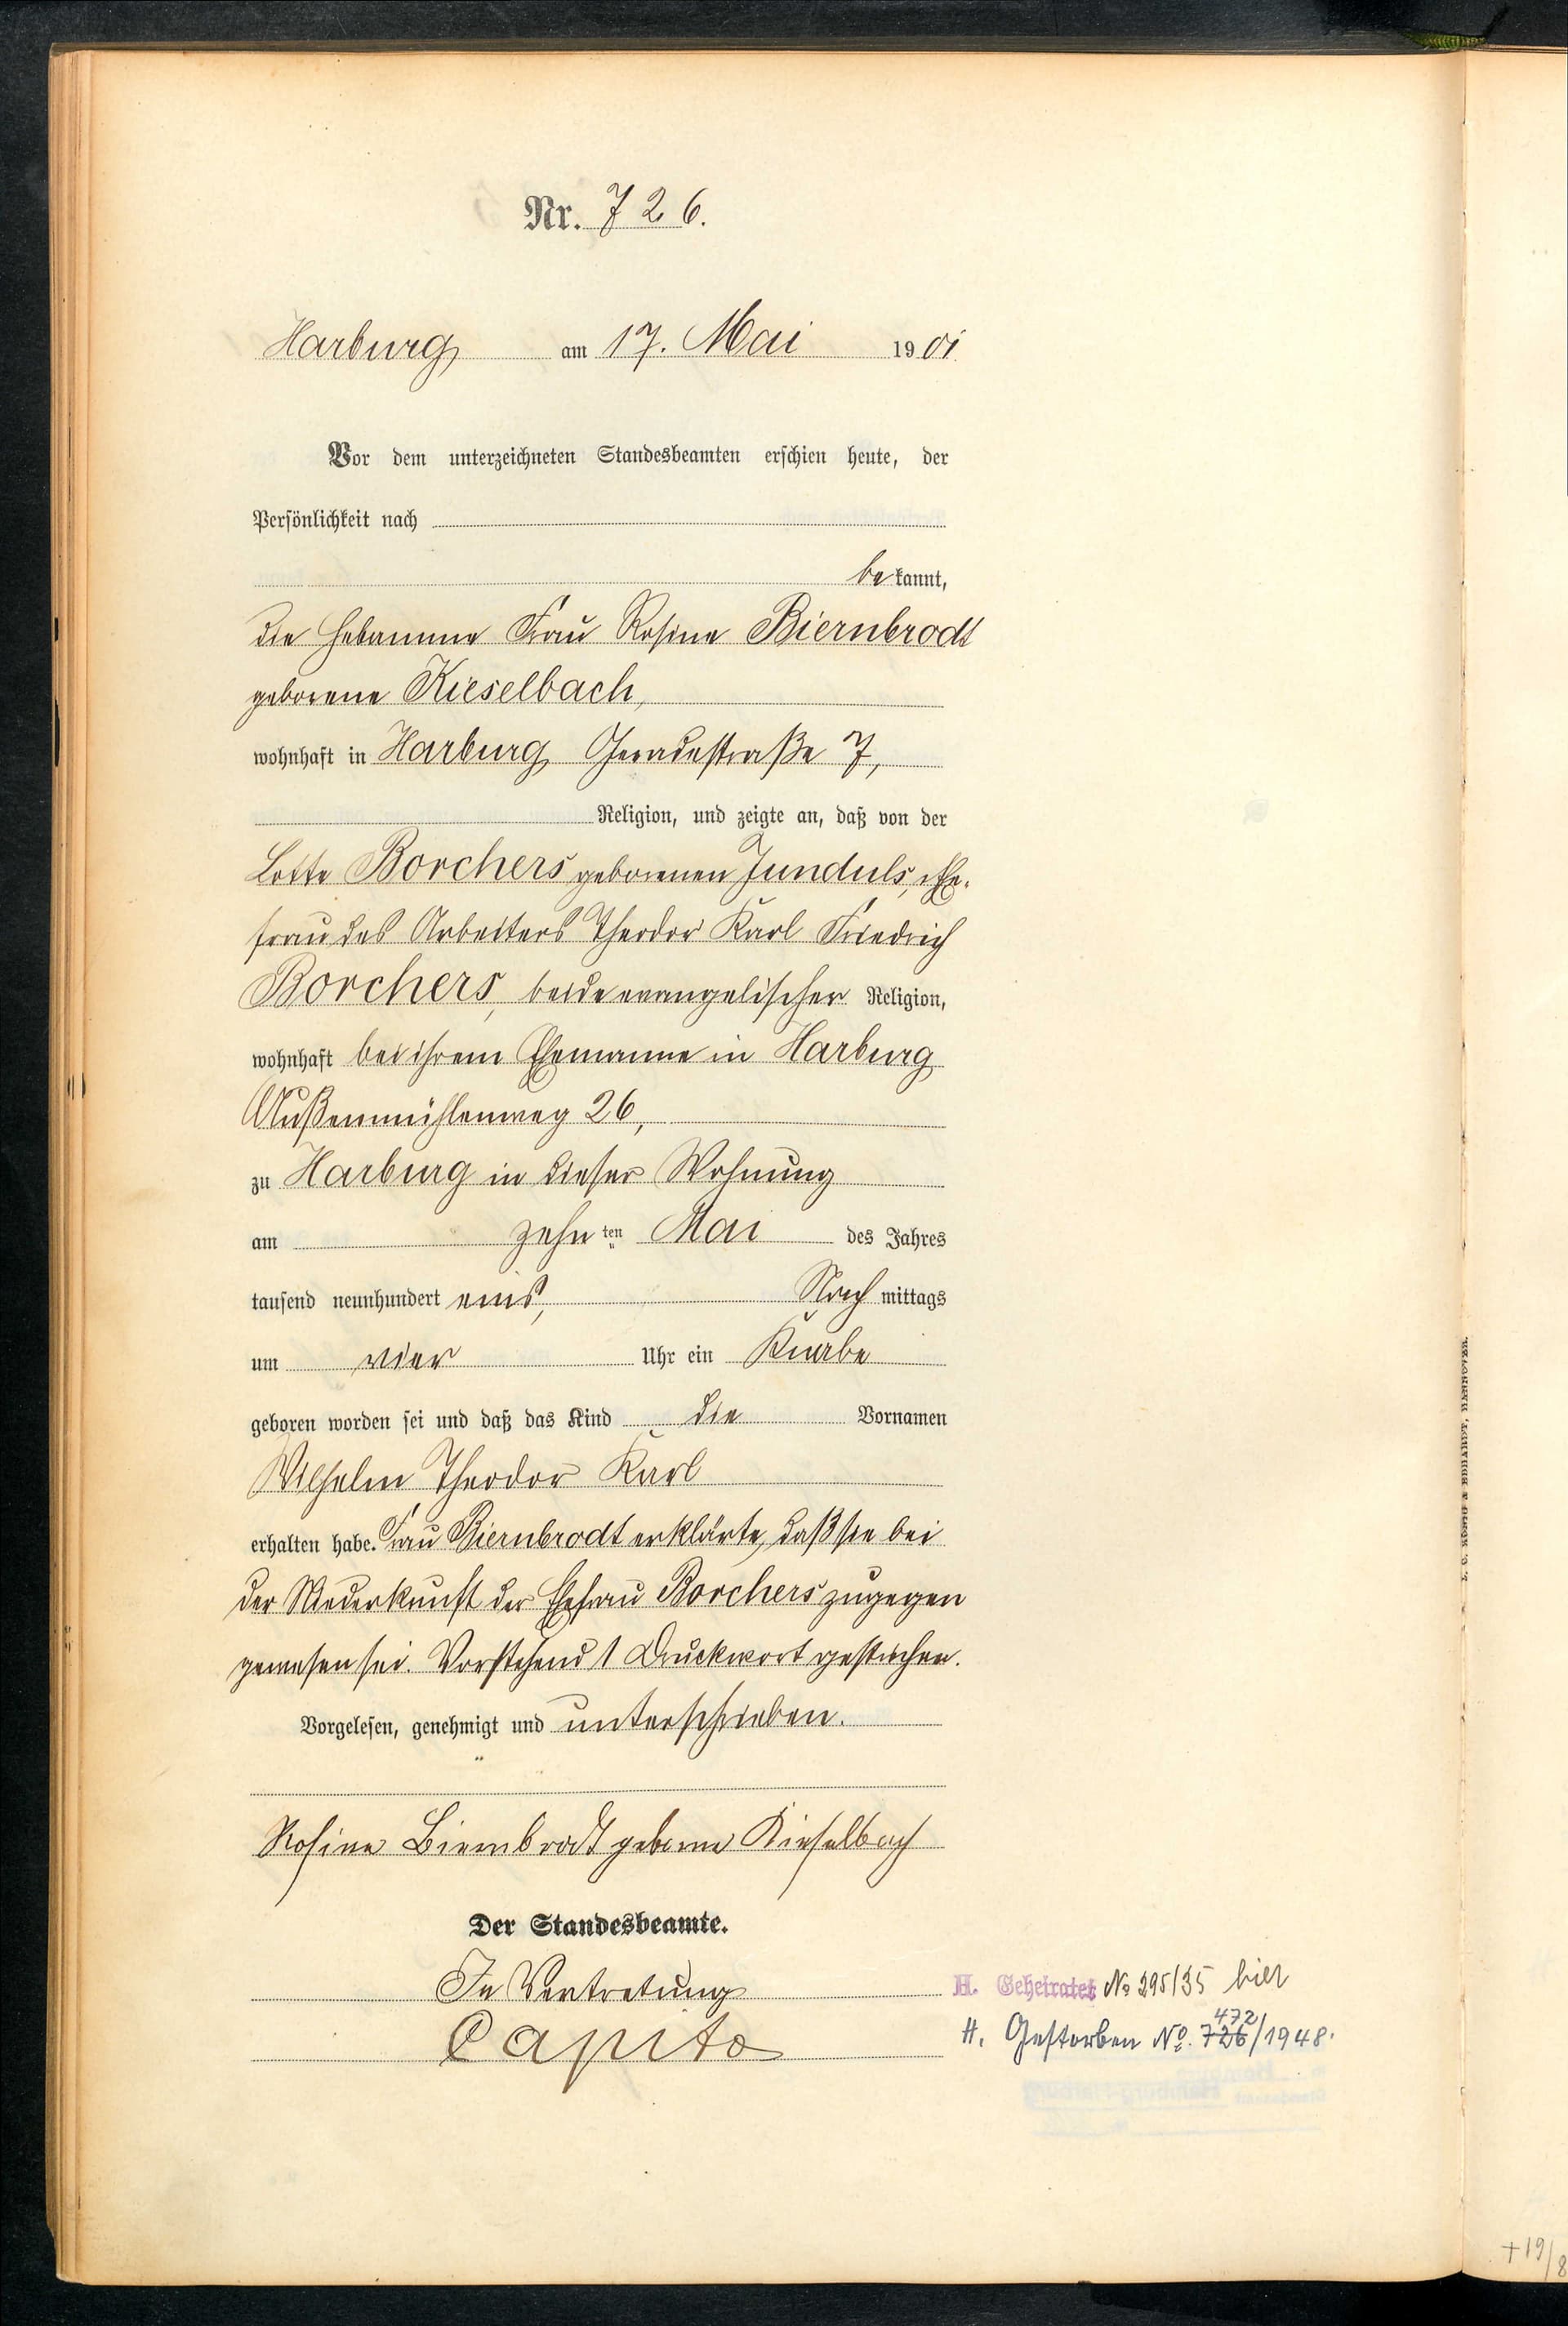 Nr. 726.
Harburg am 17. Mai 1901
Vor dem unterzeichneten Standesbeamten erschien heute, der
Persönlichkeit nach
bekannt,
die Hebamme Frau Rosine Biernbrodt
geborene Kieselbach,
wohnhaft in Harburg Geradestraße 7,
Religion, und zeigte an, daß von der
Lotte Borchers geborenen Junduls, Ehe-
frau des Arbeiters Theodor Karl Friedrich
Borchers, beide evangelischer Religion,
wohnhaft bei ihrem Ehemanne in Harburg
Außenmühlenweg 26,
zu Harburg in dieser Wohnung
am zehnten Mai des Jahres
tausend neunhundert eins, Nachmittags
um vier Uhr ein Knabe
geboren worden sei und daß das Kind die Vornamen
Wilhelm Theodor Karl
erhalten habe. Frau Biernbrodt erklärte, daß sie bei
der Niederkunft der Ehefrau Borchers zugegen
gewesen sei. Vorstehend 1 Druckwort gestrichen.
Vorgelesen, genehmigt und unterschrieben.
Rosine Biernbrodt geborene Kieselbach
Der Standesbeamte.
In Vertretung
Capito
H. Geheiratet No 295/35 hier
472
H. Gestorben No. 726/1948.
+19/8